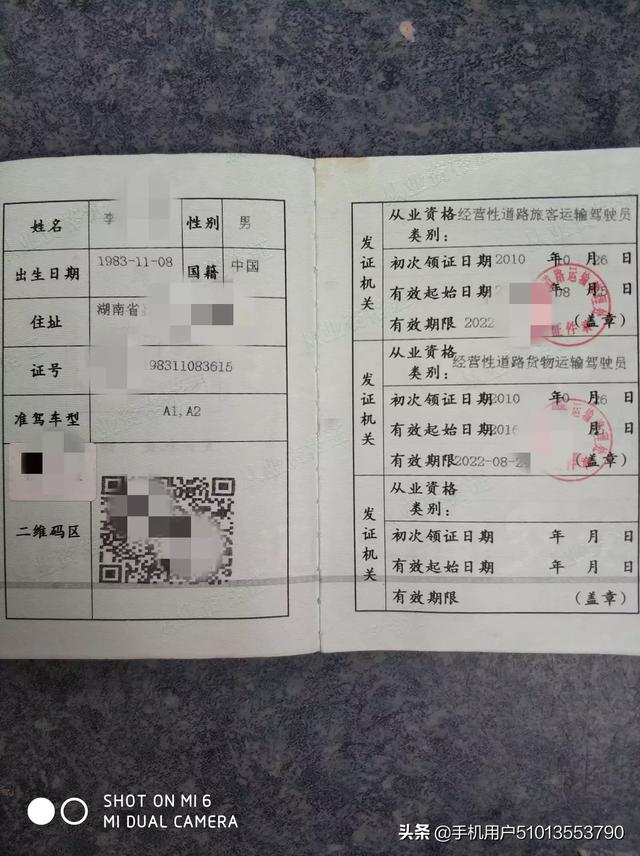 姓名 李 性别 男
出生日期 1983-11-08 国籍 中国
住址 湖南省
证号 98311083615
准驾车型 A1,A2
二维码区
发证机关
从业资格类别: 经营性道路旅客运输驾驶员
初次领证日期 2010 年 月 26 日
有效起始日期 年 08 月 日
有效期限 2022 (盖章)
发证机关
从业资格类别: 经营性道路货物运输驾驶员
初次领证日期 2010 年 月 26 日
有效起始日期 2016 年 月 日
有效期限 2022-08-2 (盖章)
发证机关
从业资格类别:
初次领证日期 年 月 日
有效起始日期 年 月 日
有效期限 (盖章)
SHOT ON MI 6
MI DUAL CAMERA
头条 @手机用户51013553790